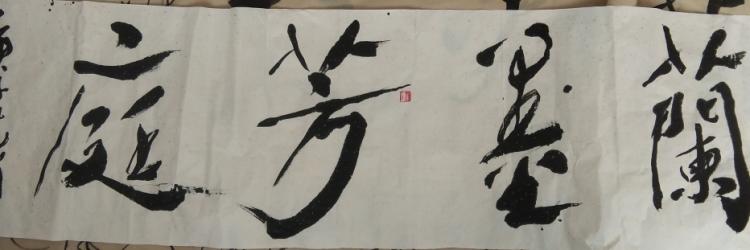 蘭墨芳庭